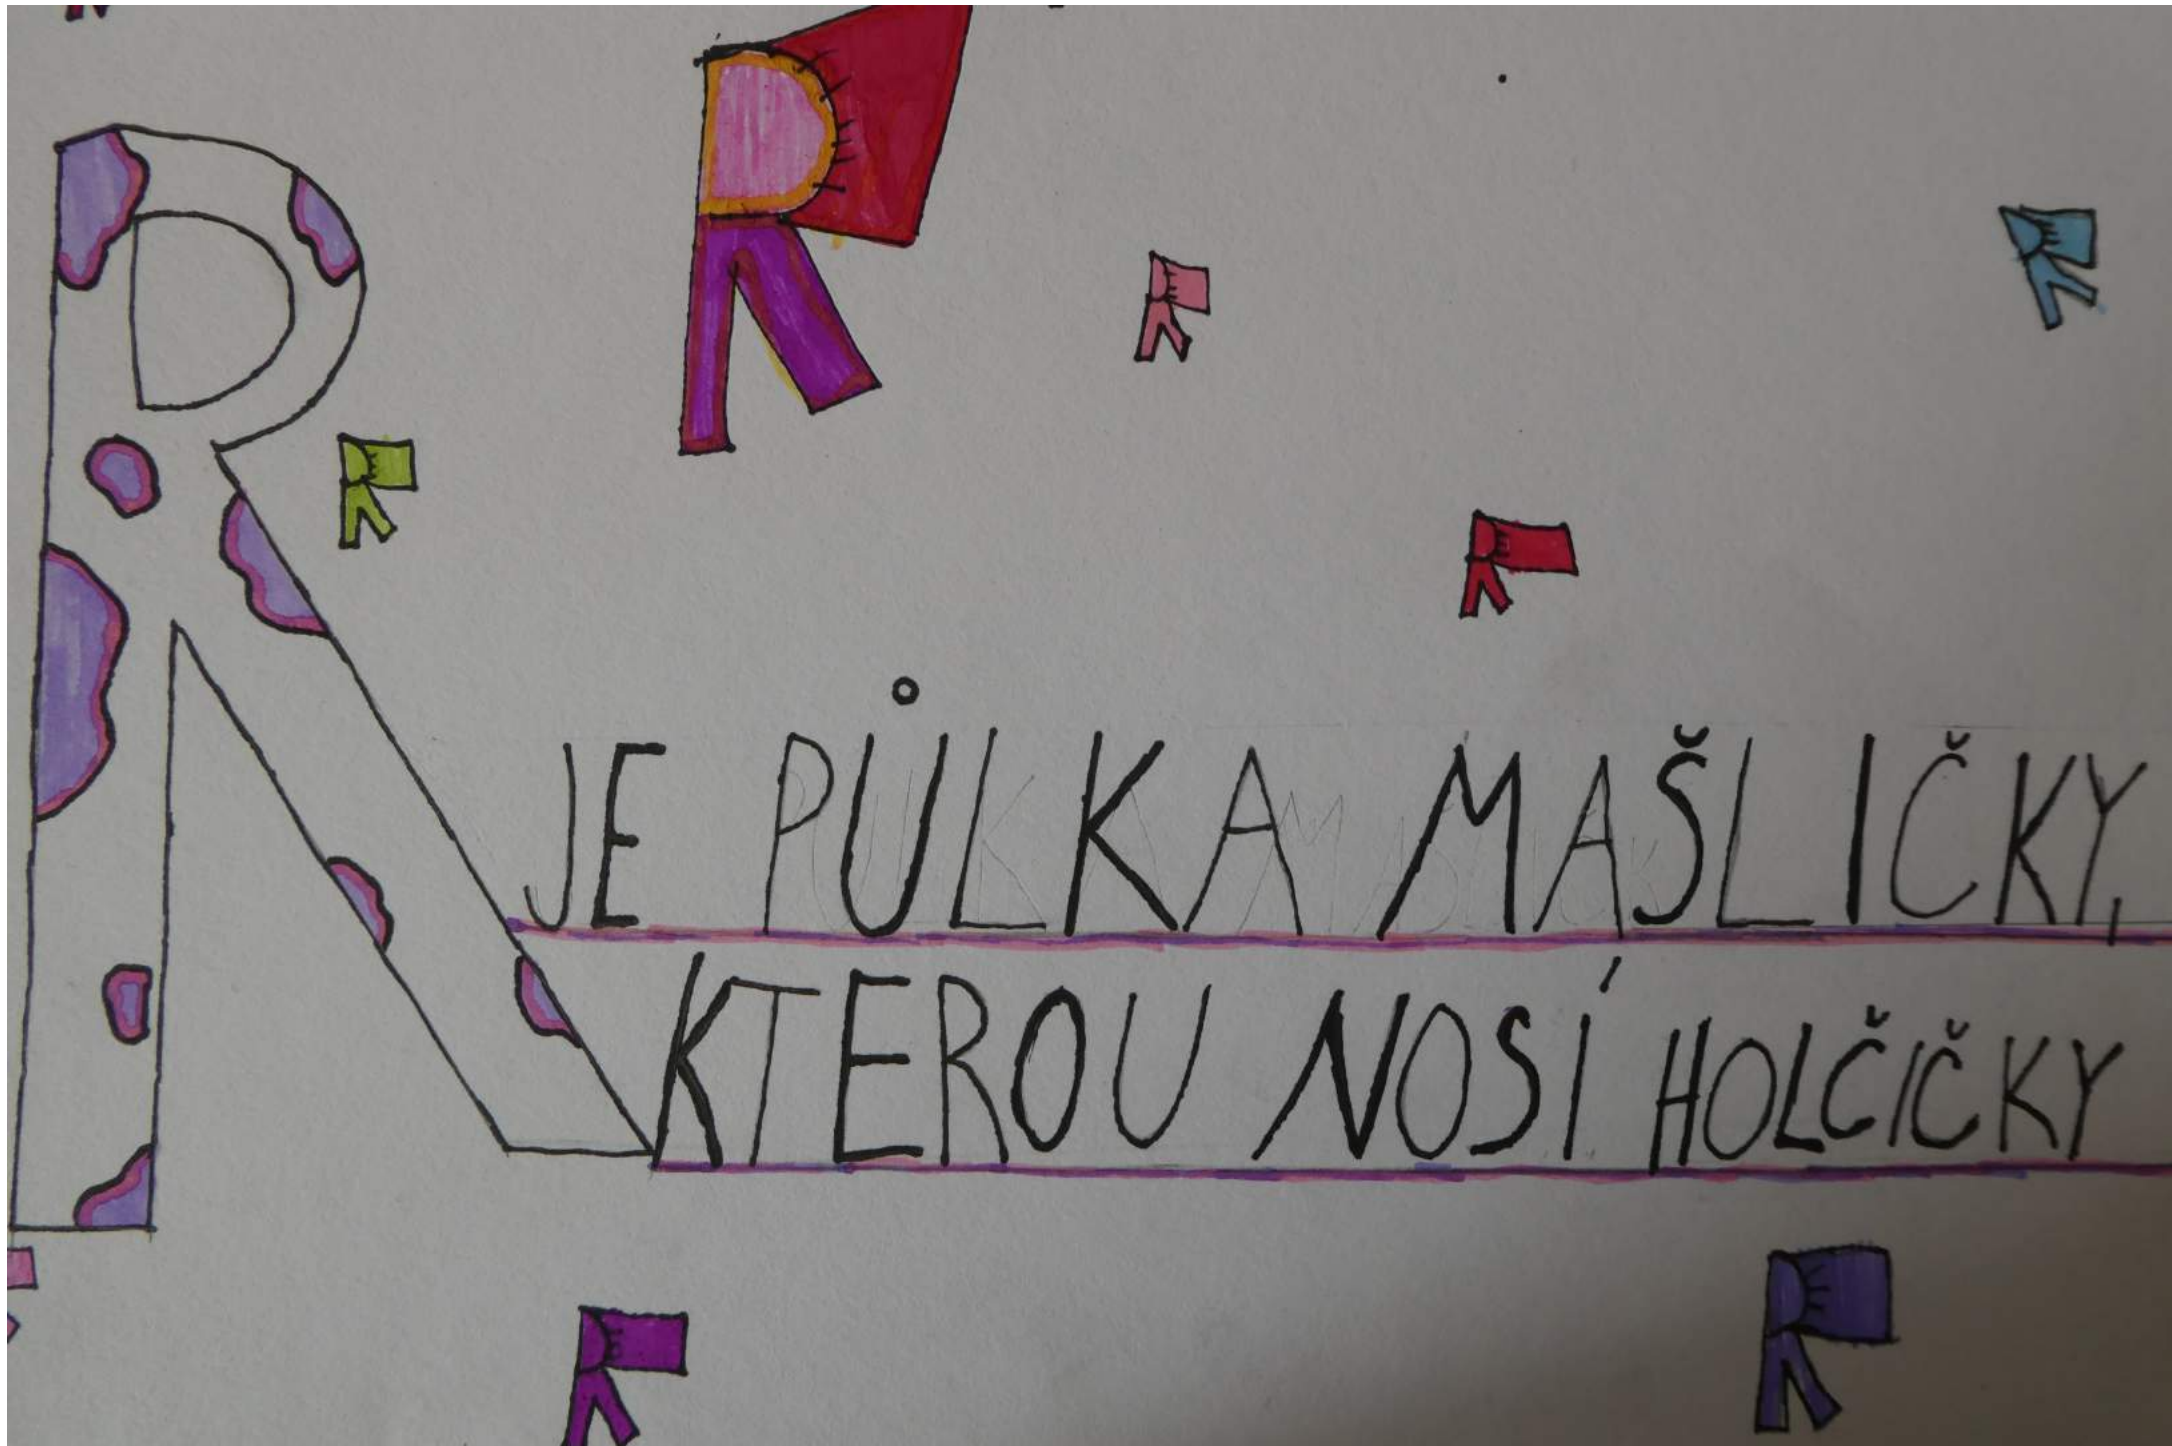 R JE PŮLKA MAŠLIČKY,
KTEROU NOSÍ HOLČIČKY